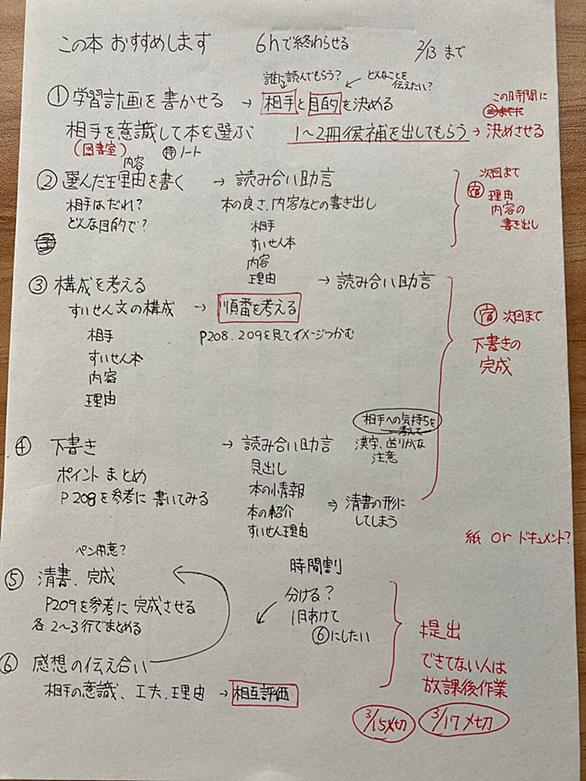 この本 おすすめします 6hで終わらせる 3/13 まで
誰に読んでもらう? どんなことを伝えたい?
① 学習計画を書かせる → 相手と目的を決める この時間に
相手を意識して本を選ぶ 1〜2冊候補を出してもらう → 決めさせる
(図書室) 持 ノート
内容
② 選んだ理由を書く → 読み合い助言 次回まで
相手はだれ? 本の良さ、内容などの書き出し 宿 理由
どんな目的で? 相手 内容の
すいせん本 書き出し
内容
理由
③ 構成を考える → 読み合い助言
すいせん文の構成 → 順番を考える 宿 次回まで
相手 P208.209を見てイメージつかむ 下書きの
すいせん本 完成
内容
理由
相手への気持ちを
考えて
④ 下書き → 読み合い助言 漢字、送りがな
ポイント まとめ 見出し 注意
P208を参考に書いてみる 本の情報
本の紹介 ⇒ 清書の形に
すいせん理由 してしまう
紙 or ドキュメント?
ペン用意? 時間割
⑤ 清書、完成 分ける?
P209を参考に完成させる 1日あけて
各2〜3行でまとめる ⑥にしたい 提出
⑥ 感想の伝え合い できてない人は
相手の意識、工夫、理由 → 相互評価 放課後作業
3/15〆切 3/17〆切